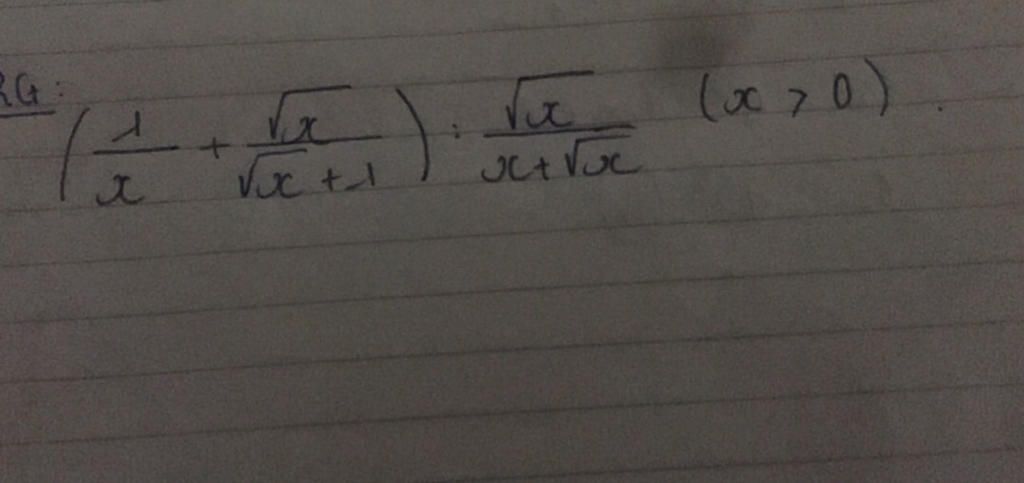 RG:
(1/x + √x/(√x+1)) : √x/(x+√x) (x > 0).